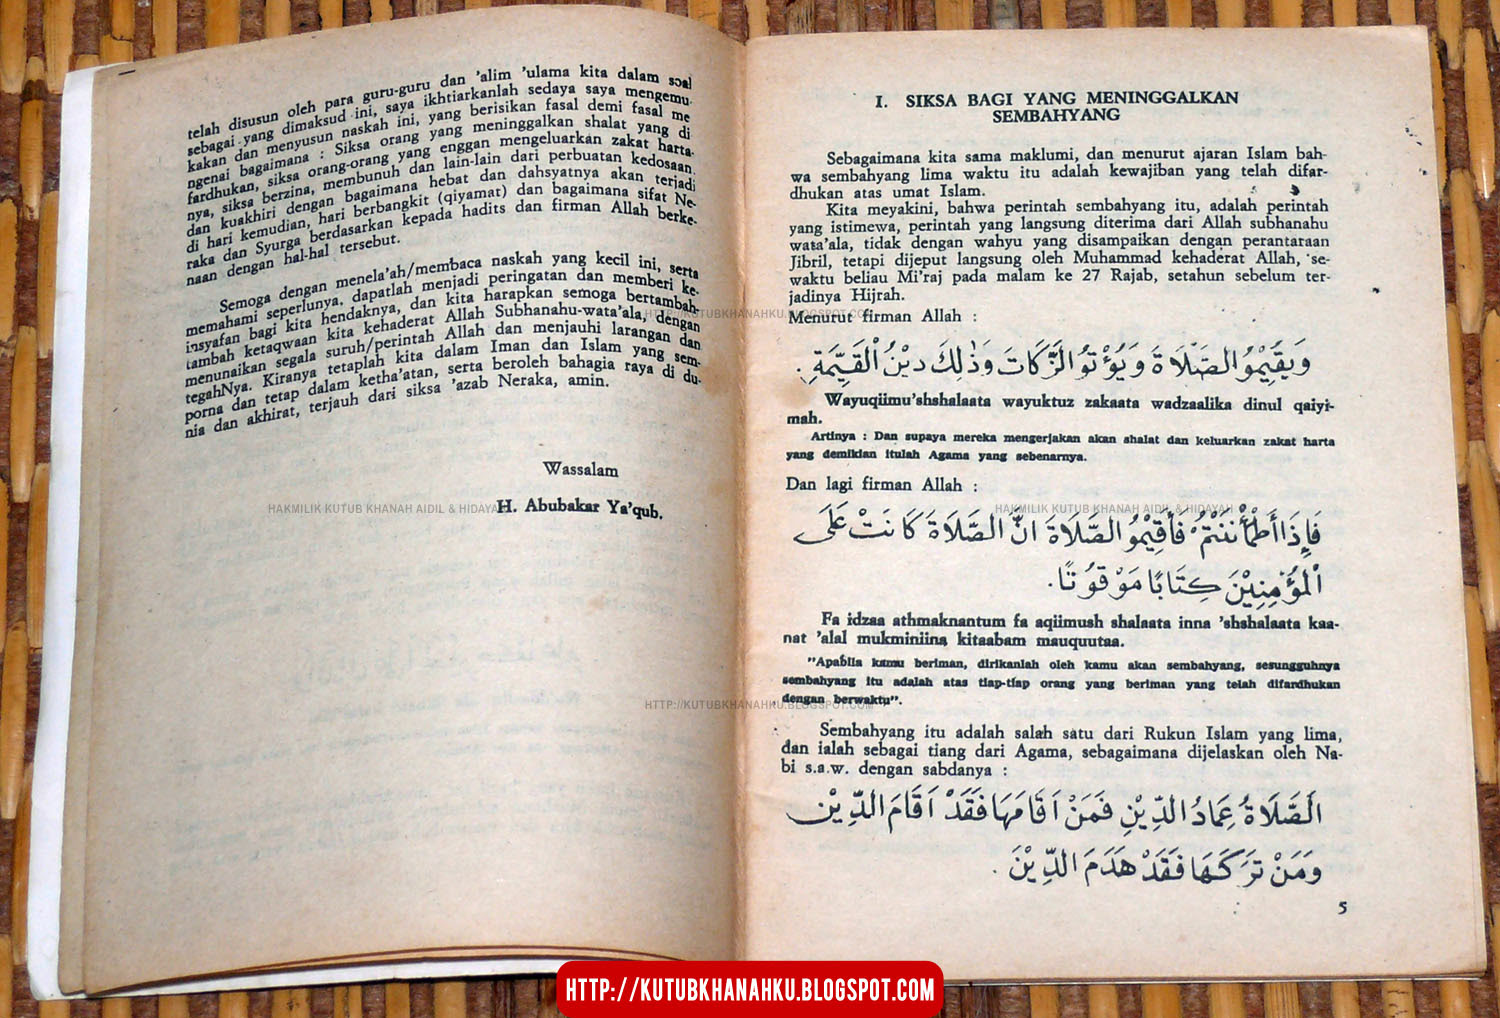 telah disusun oleh para guru-guru dan 'alim 'ulama kita dalam soal
sebagai yang dimaksud ini, saya ikhtiarkanlah sedaya saya mengemu-
kakan dan menyusun naskah ini, yang berisikan fasal demi fasal me
ngenai bagaimana : Siksa orang yang meninggalkan shalat yang di
fardhukan, siksa orang-orang yang enggan mengeluarkan zakat harta-
nya, siksa berzina, membunuh dan lain-lain dari perbuatan kedosaan.
dan kuakhiri dengan bagaimana hebat dan dahsyatnya akan terjadi
di hari kemudian, hari berbangkit (qiyamat) dan bagaimana sifat Ne-
raka dan Syurga berdasarkan kepada hadits dan firman Allah berke-
naan dengan hal-hal tersebut.
Semoga dengan menela'ah/membaca naskah yang kecil ini, serta
memahami seperlunya, dapatlah menjadi peringatan dan memberi ke-
insyafan bagi kita hendaknya, dan kita harapkan semoga bertambah-
tambah ketaqwaan kita kehaderat Allah Subhanahu-wata'ala, dengan
menunaikan segala suruh/perintah Allah dan menjauhi larangan dan
tegahNya. Kiranya tetaplah kita dalam Iman dan Islam yang sem-
porna dan tetap dalam ketha'atan, serta beroleh bahagia raya di du-
nia dan akhirat, terjauh dari siksa 'azab Neraka, amin.
Wassalam
H. Abubakar Ya'qub.
HAKMILIK KUTUB KHANAH AIDIL & HIDAYAH
I. SIKSA BAGI YANG MENINGGALKAN
SEMBAHYANG
Sebagaimana kita sama maklumi, dan menurut ajaran Islam bah-
wa sembahyang lima waktu itu adalah kewajiban yang telah difar-
dhukan atas umat Islam.
Kita meyakini, bahwa perintah sembahyang itu, adalah perintah
yang istimewa, perintah yang langsung diterima dari Allah subhanahu
wata'ala, tidak dengan wahyu yang disampaikan dengan perantaraan
Jibril, tetapi dijeput langsung oleh Muhammad kehaderat Allah, se-
waktu beliau Mi'raj pada malam ke 27 Rajab, setahun sebelum ter-
jadinya Hijrah.
HTTP://KUTUBKHANAHKU.BLOGSPOT.COM
Menurut firman Allah :
وَيُقِيْمُو الصَّلَاةَ وَيُؤْتُو الزَّكَاتَ وَذٰلِكَ دِيْنُ الْقَيِّمَةِ .
Wayuqiimu'shshalaata wayuktuz zakaata wadzaalika dinul qaiyi-
mah.
Artinya : Dan supaya mereka mengerjakan akan shalat dan keluarkan zakat harta
yang demikian itulah Agama yang sebenarnya.
Dan lagi firman Allah :
HAKMILIK KUTUB KHANAH AIDIL & HIDAYAH
فَاِذَا اطْمَأْنَنْتُمْ فَأَقِيْمُو الصَّلَاةَ اِنَّ الصَّلَاةَ كَانَتْ عَلَى
الْمُؤْمِنِيْنَ كِتَابًا مَوْقُوْتًا .
Fa idzaa athmaknantum fa aqiimush shalaata inna 'shshalaata kaa-
nat 'alal mukminiina kitaabam mauquutaa.
"Apabila kamu beriman, dirikanlah oleh kamu akan sembahyang, sesungguhnya
sembahyang itu adalah atas tiap-tiap orang yang beriman yang telah difardhukan
dengan berwaktu".
HTTP://KUTUBKHANAHKU.BLOGSPOT.COM
Sembahyang itu adalah salah satu dari Rukun Islam yang lima,
dan ialah sebagai tiang dari Agama, sebagaimana dijelaskan oleh Na-
bi s.a.w. dengan sabdanya :
اَلصَّلَاةُ عِمَادُ الدِّيْنِ فَمَنْ اَقَامَهَا فَقَدْ اَقَامَ الدِّيْنَ
وَمَنْ تَرَكَهَا فَقَدْ هَدَمَ الدِّيْنَ .
5
HTTP://KUTUBKHANAHKU.BLOGSPOT.COM